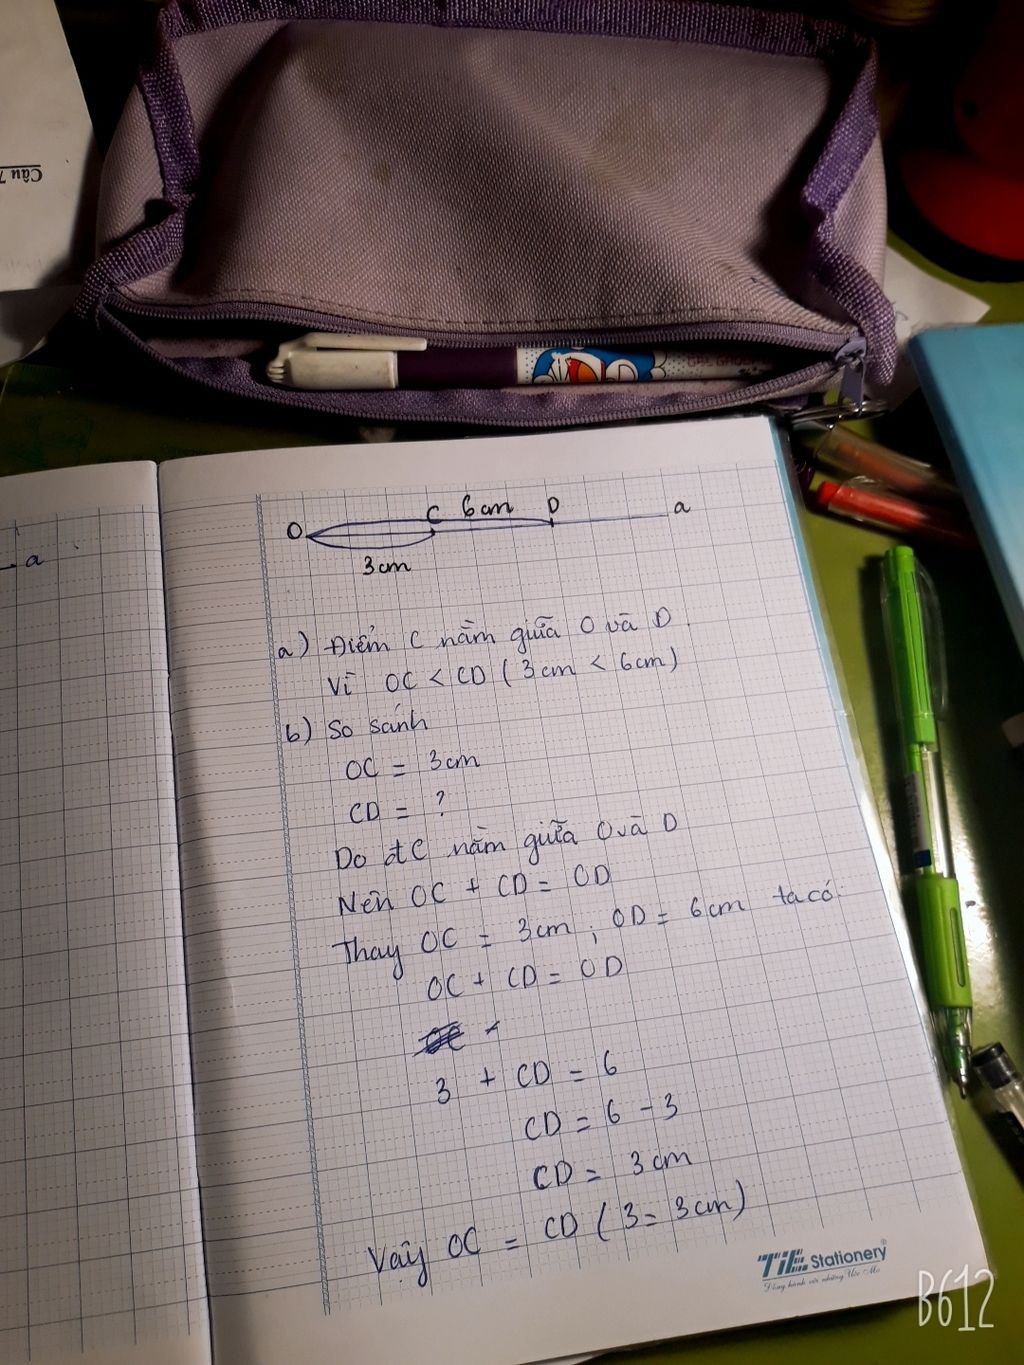 Câu 7
a
O C 6cm D a
3cm
a) Điểm C nằm giữa O và D.
Vì OC < CD ( 3cm < 6cm )
b) So sánh
OC = 3cm
CD = ?
Do đC nằm giữa O và D
Nên OC + CD = OD
Thay OC = 3cm ; OD = 6cm ta có:
OC + CD = OD
3 + CD = 6
CD = 6 - 3
CD = 3 cm
Vậy OC = CD ( 3 = 3cm )
TiE Stationery®
Đồng hành với những Ước Mơ
B612